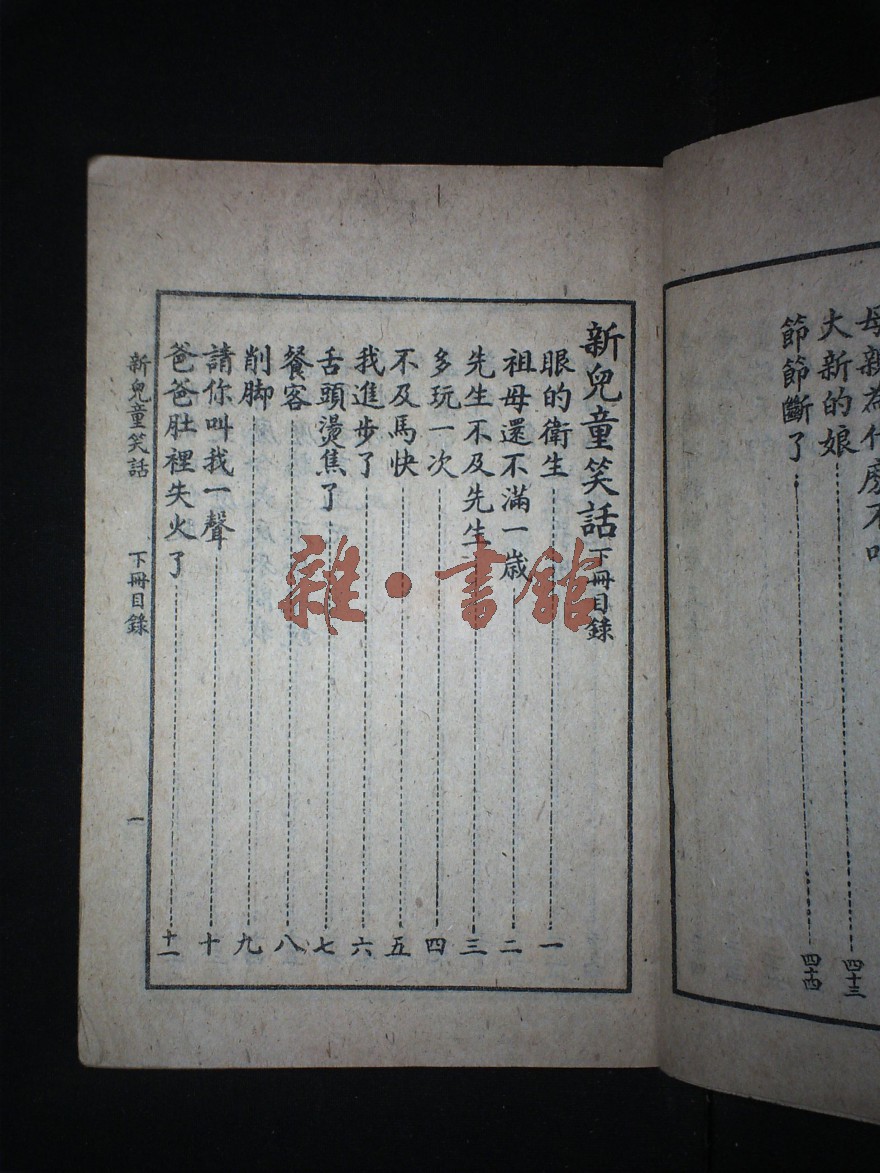 母親為什麼不
大新的娘 四十三
節節斷了 四十四
新兒童笑話 下冊目錄
眼的衛生 一
祖母還不滿一歲 二
先生不及先生 三
多玩一次 四
不及馬快 五
我進步了 六
舌頭燙焦了 七
餐客 八
削脚 九
請你叫我一聲 十
爸爸肚裡失火了 十一
新兒童笑話 下冊目錄 一
雜·書館